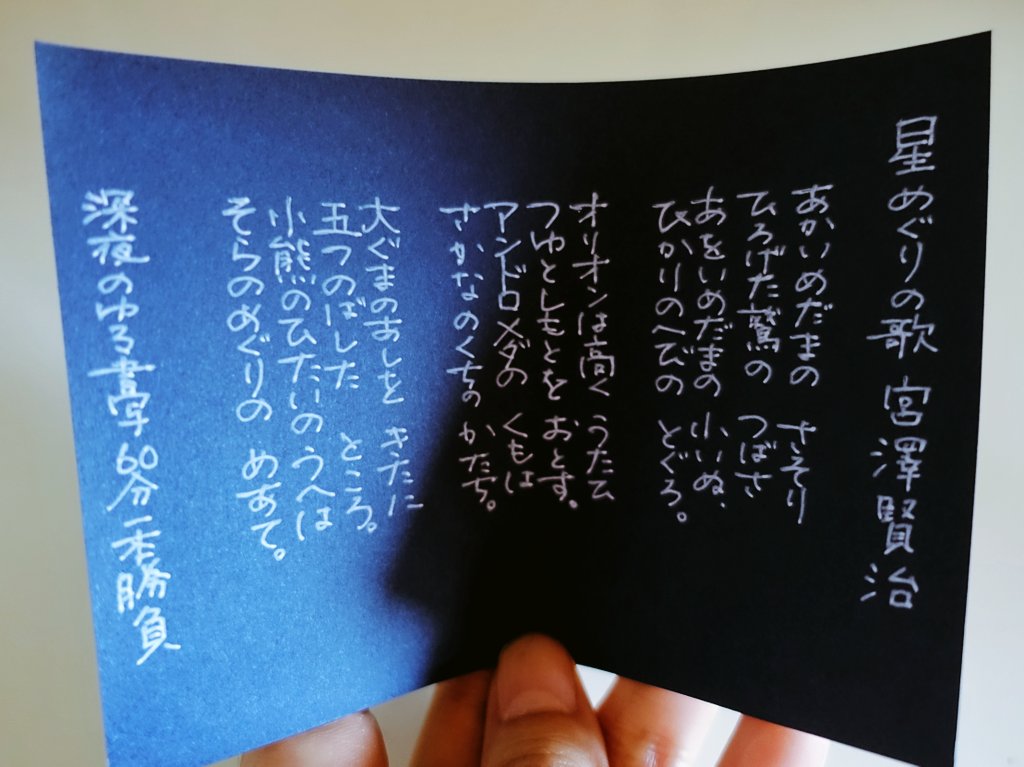 星めぐりの歌 宮澤賢治
あかいめだまの さそり
ひろげた鷲の つばさ
あをいめだまの 小いぬ、
ひかりのへびの とぐろ。
オリオンは高く うたひ
つゆとしもとを おとす。
アンドロメダの くもは
さかなのくちの かたち。
大ぐまのあしを きたに
五つのばした ところ。
小熊のひたいのうへは
そらのめぐりの めあて。
深夜のゆる書写60分一本勝負